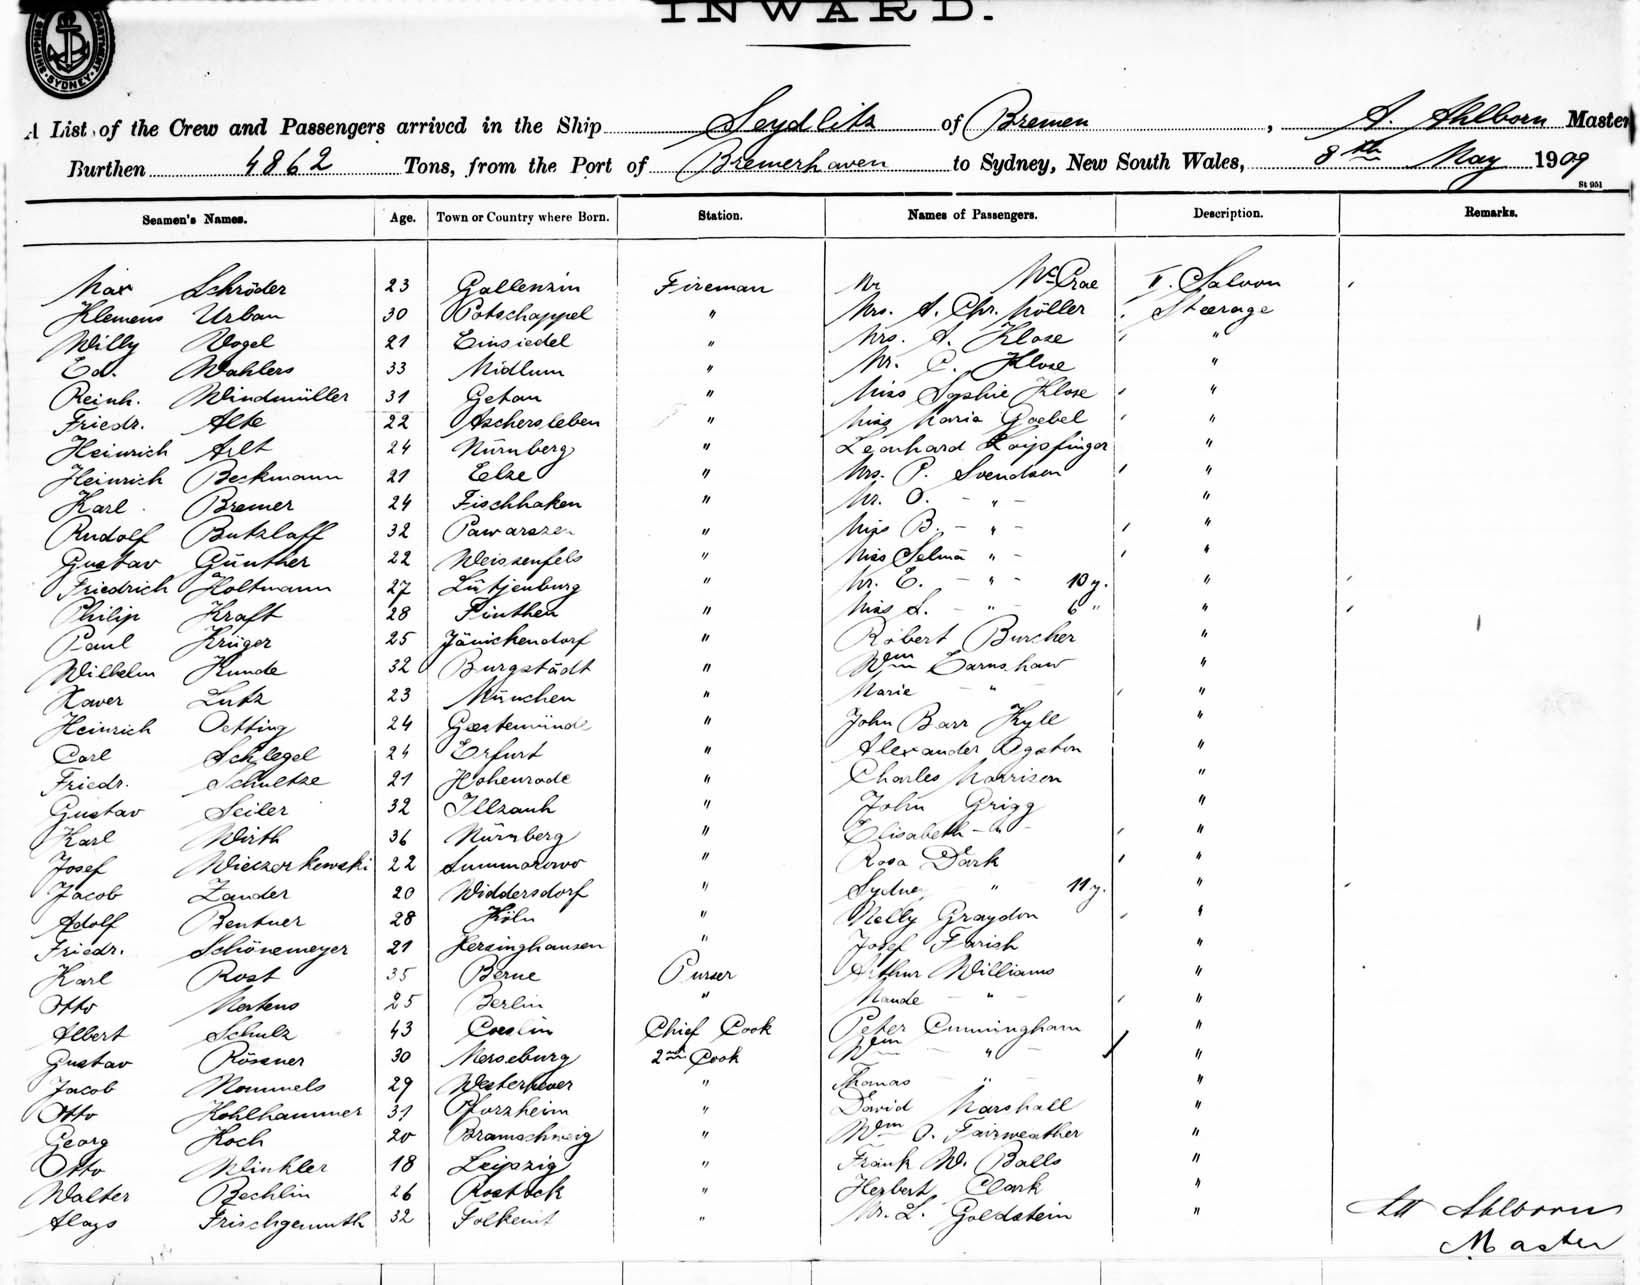 INWARD.
SHIPPING DEPARTMENT SYDNEY
A List of the Crew and Passengers arrived in the Ship Seydlitz of Bremen, A. Ahlborn Master
Burthen 4862 Tons, from the Port of Bremerhaven to Sydney, New South Wales, 8th May 1909
St 951
Seamen's Names. Age. Town or Country where Born. Station. Names of Passengers. Description. Remarks.
Max Schröder 23 Gallenzin Fireman Mr McCrae II. Saloon
Klemens Urban 30 Potschappel " Mrs. A. Chr. Möller Steerage
Willy Vogel 21 Einsiedel " Mrs. A. Klose "
Ed. Wahlers 33 Midlum " Mr. C. Klose "
Reinh. Windmüller 31 Getau " Miss Sophie Klose "
Friedr. Alte 22 Aschersleben " Miss Maria Goebel "
Heinrich Arlt 24 Nürnberg " Leonhard Loipfinger "
Heinrich Beckmann 21 Elze " Mrs. P. Svendsen "
Karl Bremer 24 Fischhaken " Mr. O. - " - "
Rudolf Butzlaff 32 " Miss B. - " - "
Gustav Günther 22 Weissenfels " Miss Selma " - "
Friedrich Holtmann 27 Lütjenburg " Mr. E. - " - 10 y. "
Philip Kraft 28 Finthen " Miss L. - " - 6 " "
Paul Krüger 25 Jänickendorf " Robert Burcher "
Wilhelm Kunde 32 Burgstädt " Wm Earnshaw "
Xaver Lutz 23 München " Marie - " - "
Heinrich Oetting 24 Geestemünde " John Barr Kyle "
Carl Schlegel 24 Erfurt " Alexander Ogston "
Friedr. Schultze 21 Hohenrode " Charles Morrison "
Gustav Seiler 32 Illzach " John Grigg "
Karl Wirth 36 Nürnberg " Elisabeth - " - "
Josef Wieczorkowski 22 " Rosa Dark "
Jacob Zander 20 Widdersdorf " Sydney " 11 y. "
Adolf Bentner 28 Köln " Nelly Graydon "
Friedr. Schönemeyer 21 " Josef Farish "
Karl Rost 35 Berne Purser Arthur Williams "
Otto Mertens 25 Berlin " Maude - " - "
Albert Schulz 43 Coeslin Chief Cook Peter Cunningham "
Gustav Rössner 30 Merseburg 2nd Cook Wm - " - "
Jacob Mommels 29 Westerhever " Thomas - " - "
Otto Kohlhammer 31 Pforzheim " David Marshall "
Georg Koch 20 Braunschweig " Wm O. Fairweather "
Otto Winkler 18 Leipzig " Frank W. Balls "
Walter Bechlin 26 Rostock " Herbert Clark "
Aloys Frischgemuth 32 Folkenit " Mr. L. Goldstein "
Att Ahlborn
Master